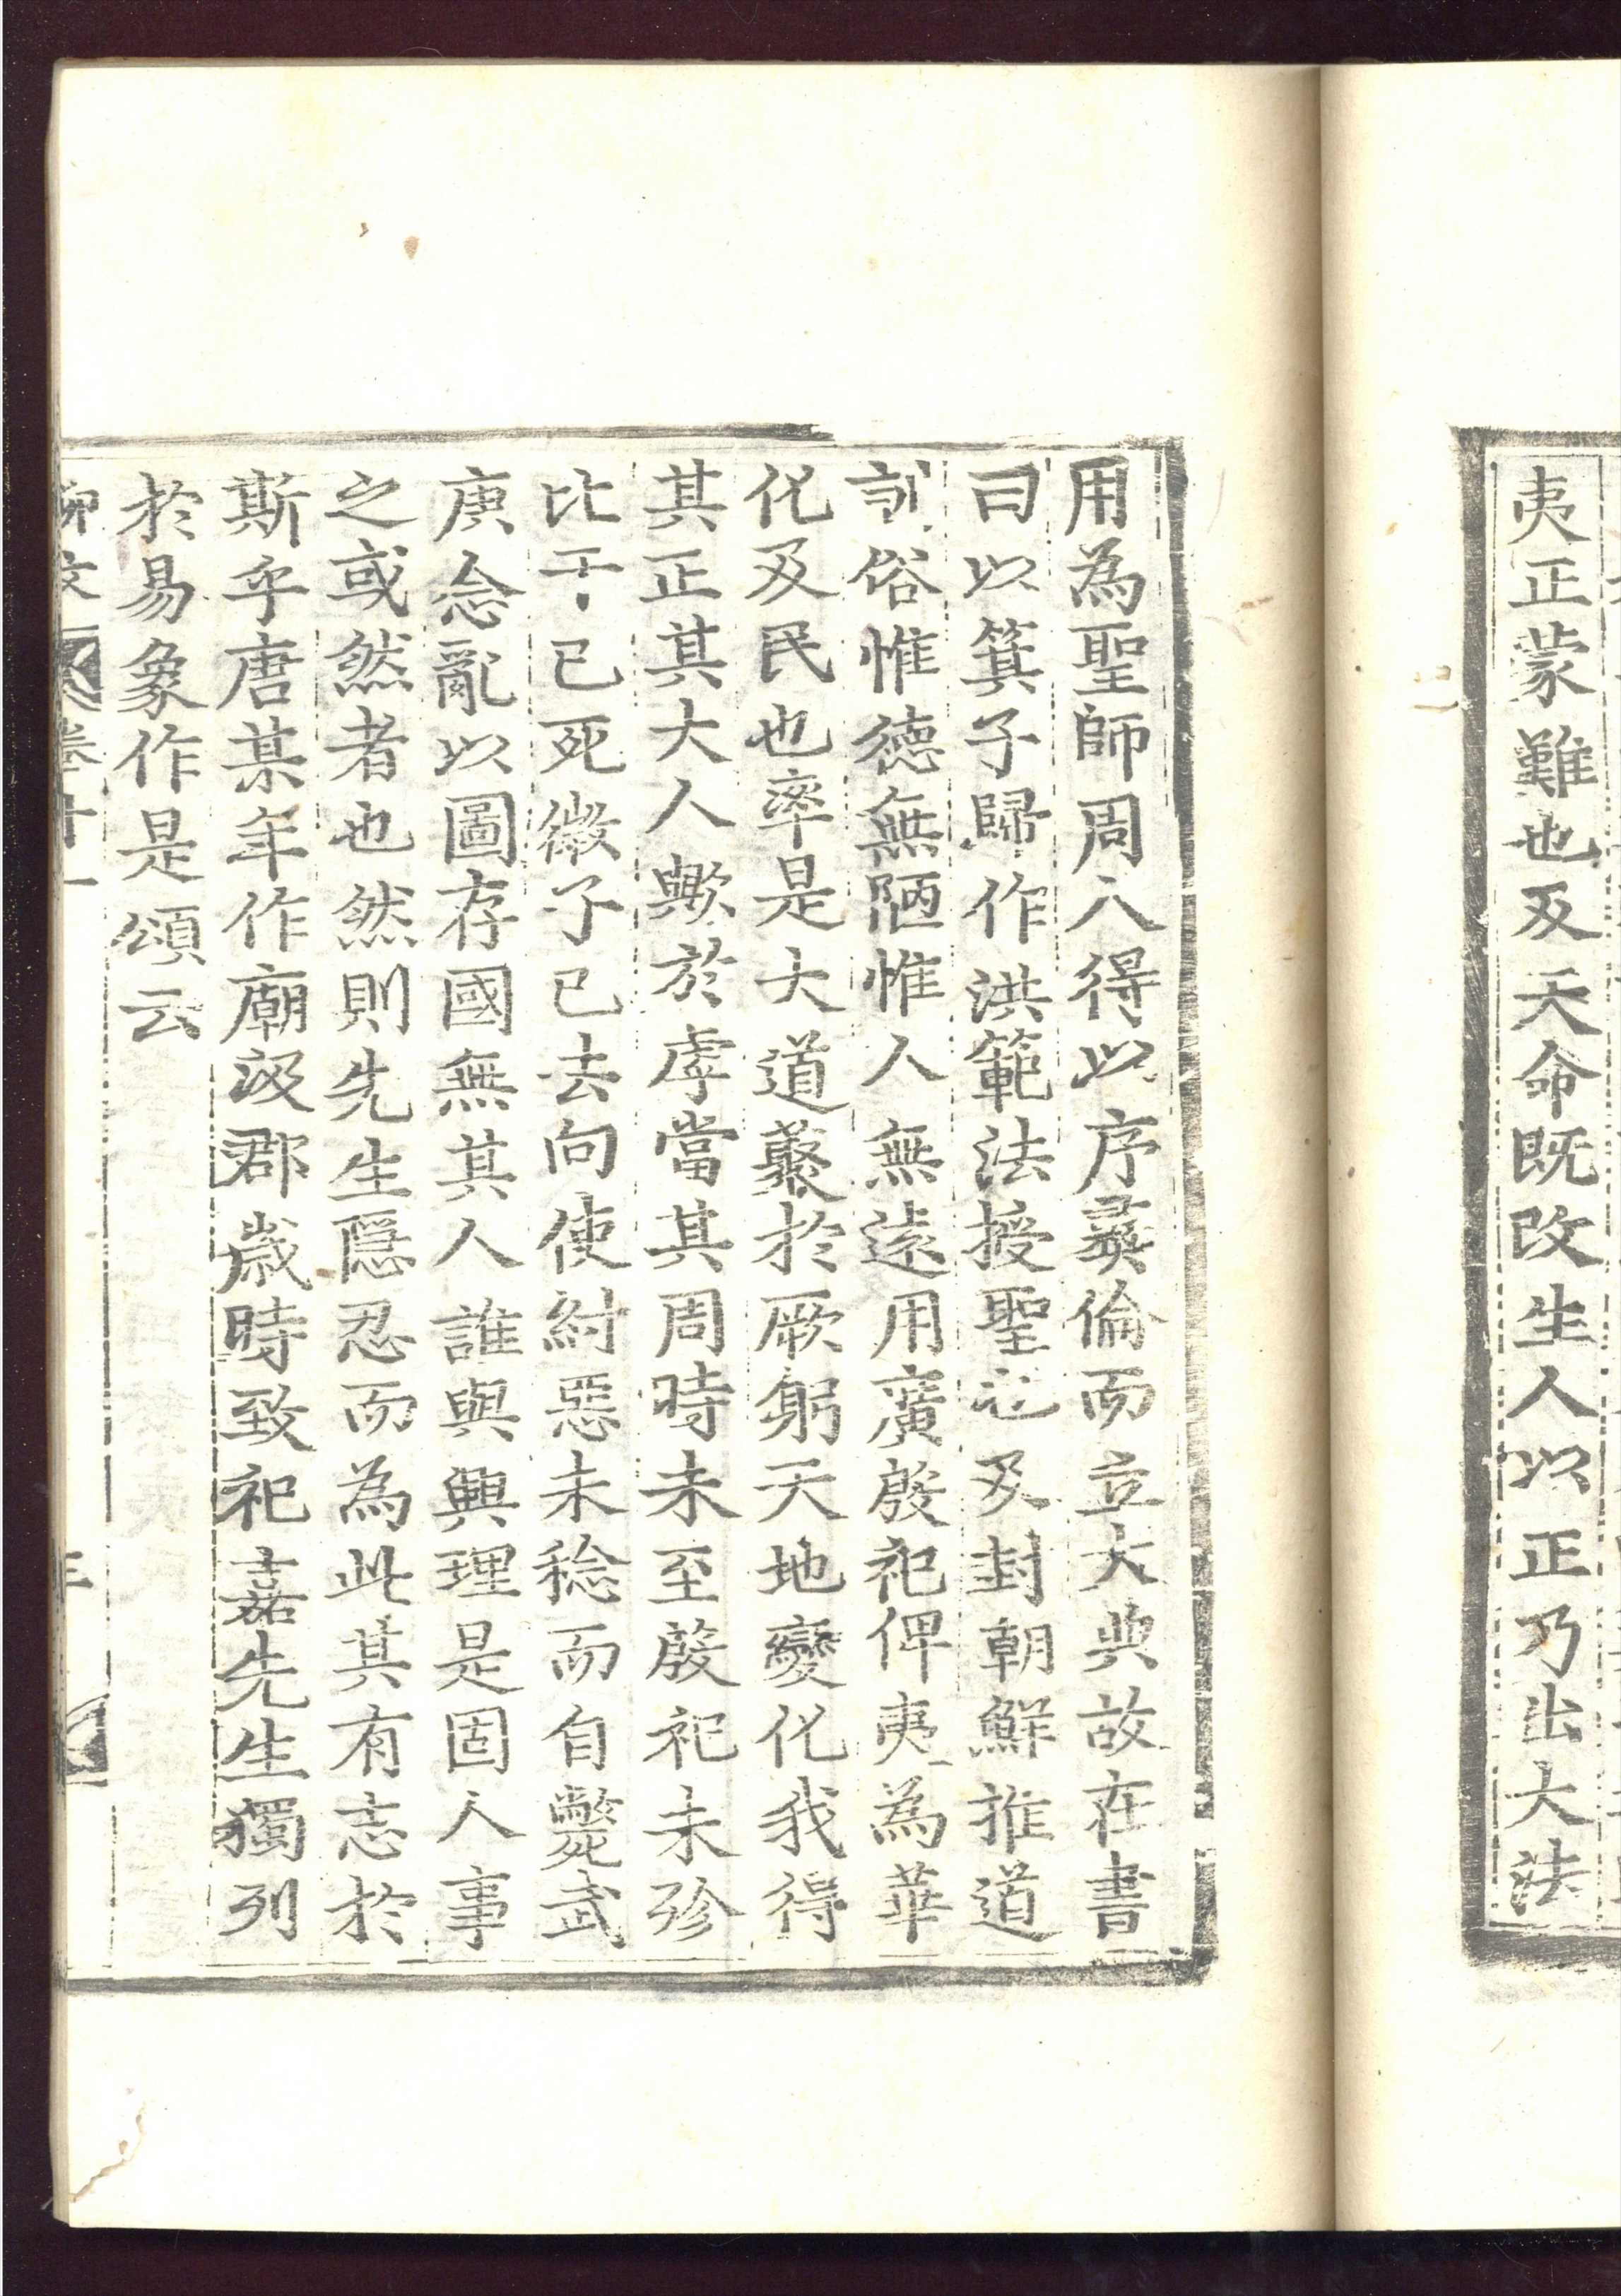 夷正蒙難也及天命既改生人以正乃出大法
用為聖師周人得以序彝倫而立大典故在書
曰以箕子歸作洪範法授聖也及封朝鮮推道
訓俗惟德無陋惟人無遠用廣殷祀俾夷為華
化及民也率是大道藂於厥躬天地變化我得
其正其大人歟於虖當其周時未至殷祀未殄
比干已死微子已去向使紂惡未稔而自斃武
庚念亂以圖存國無其人誰與興理是固人事
之或然者也然則先生隱忍而為此其有志於
斯乎唐某年作廟汲郡歲時致祀嘉先生獨列
於易象作是頌云
柳文 卷十一